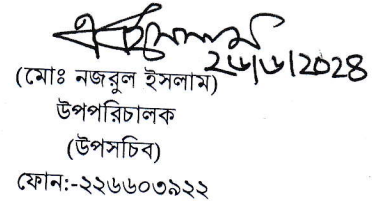 ২৬/৬/2028
(মোঃ নজরুল ইসলাম)
উপপরিচালক
(উপসচিব)
ফোন:-২২৬৬০৩৯২২